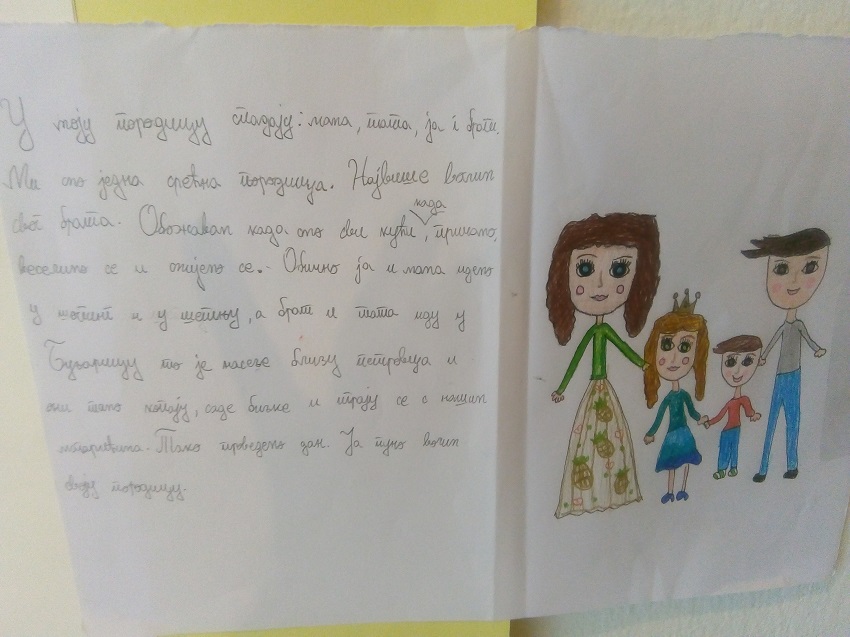 У моју породицу спадају: мама, тата, ја и брат.
Ми смо једна срећна породица. Највише волим
свог брата. Обожавам када смо сви кући,
када
причамо,
веселимо се и смијемо се. Обично ја и мама идемо
у шопинг и у шетњу, а брат и тата иду у
то је насеље близу петровца и
они тамо копају, саде биљке и играју се с нашим
Тако проведемо дан. Ја пуно волим
своју породицу.